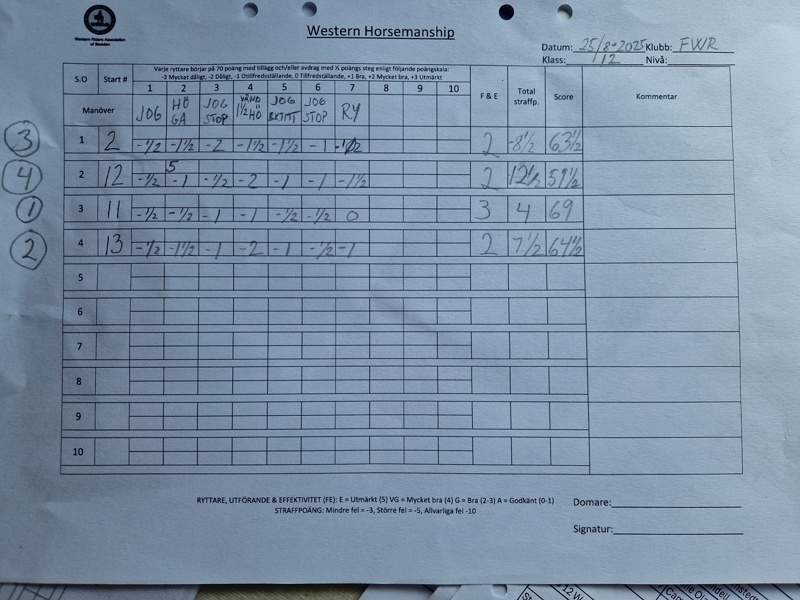 Western Riders Association
of Sweden
Western Horsemanship
Datum: 25/8-2025 Klubb: FWR
Klass: 12 Nivå:
Varje ryttare börjar på 70 poäng med tillägg och/eller avdrag med ½ poängs steg enligt följande poängskala:
-3 Mycket dåligt, -2 Dåligt, -1 Otillfredsställande, 0 Tillfredställande, +1 Bra, +2 Mycket bra, +3 Utmärkt
S.O Start # 1 2 3 4 5 6 7 8 9 10 F & E Total straffp. Score Kommentar
Manöver JOG HÖ GA JOG STOP VÄND 1 1/2 HÖ JOG JOG STOP RY
3 1 2 -1/2 -1 1/2 -2 -1 1/2 -1 1/2 -1 2 -8 1/2 63 1/2
4 2 12 -1/2 5 -1 -1/2 -2 -1 -1 -1 1/2 2 12 1/2 59 1/2
1 3 11 -1/2 -1/2 -1 -1 -1/2 -1/2 0 3 4 69
2 4 13 -1/2 -1 1/2 -1 -2 -1 -1/2 -1 2 7 1/2 64 1/2
5
6
7
8
9
10
RYTTARE, UTFÖRANDE & EFFEKTIVITET (FE): E = Utmärkt (5) VG = Mycket bra (4) G = Bra (2-3) A = Godkänt (0-1)
STRAFFPOÄNG: Mindre fel = -3, Större fel = -5, Allvarliga fel -10
Domare:
Signatur:
12 W